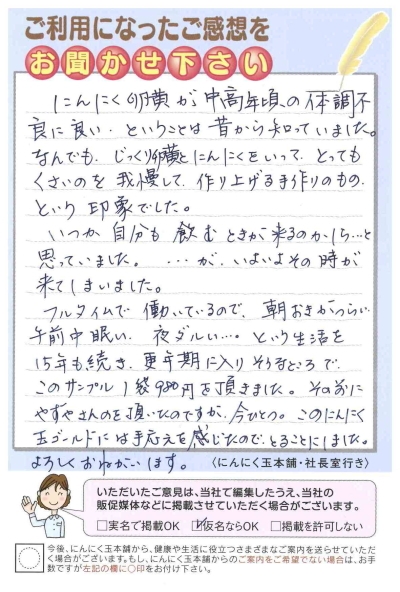 ご利用になったご感想を
お聞かせ下さい
にんにく卵黄が中高年頃の体調不
良に良い、ということは昔から知っていました。
なんでも、じっくり卵黄とにんにくをいって、とっても
くさいのを我慢して、作り上げる手作りのもの、
という印象でした。
いつか自分も飲むときが来るのかしら…と
思っていました。…が、いよいよその時が
来てしまいました。
フルタイムで働いているので、朝おきがつらい
午前中眠い、夜ダルい…。という生活を
15年も続き、更年期に入りそうなところで、
このサンプル1袋980円を頂きました。その前に
やずやさんのを頂いたのですが、今ひとつ。このにんにく
玉ゴールドには手応えを感じたので、とることにしました。
よろしくおねがいします。
〈にんにく玉本舗・社長室行き〉
いただいたご意見は、当社で編集したうえ、当社の
販促媒体などに掲載させていただく場合がございます。
□実名で掲載OK ☑仮名ならOK □掲載を許可しない
今後、にんにく玉本舗から、健康や生活に役立つさまざまなご案内を送らせていただ
く場合がございます。もし、にんにく玉本舗からのご案内をご希望でない場合は、お手
数ですが左記の欄に○印をお付け下さい。